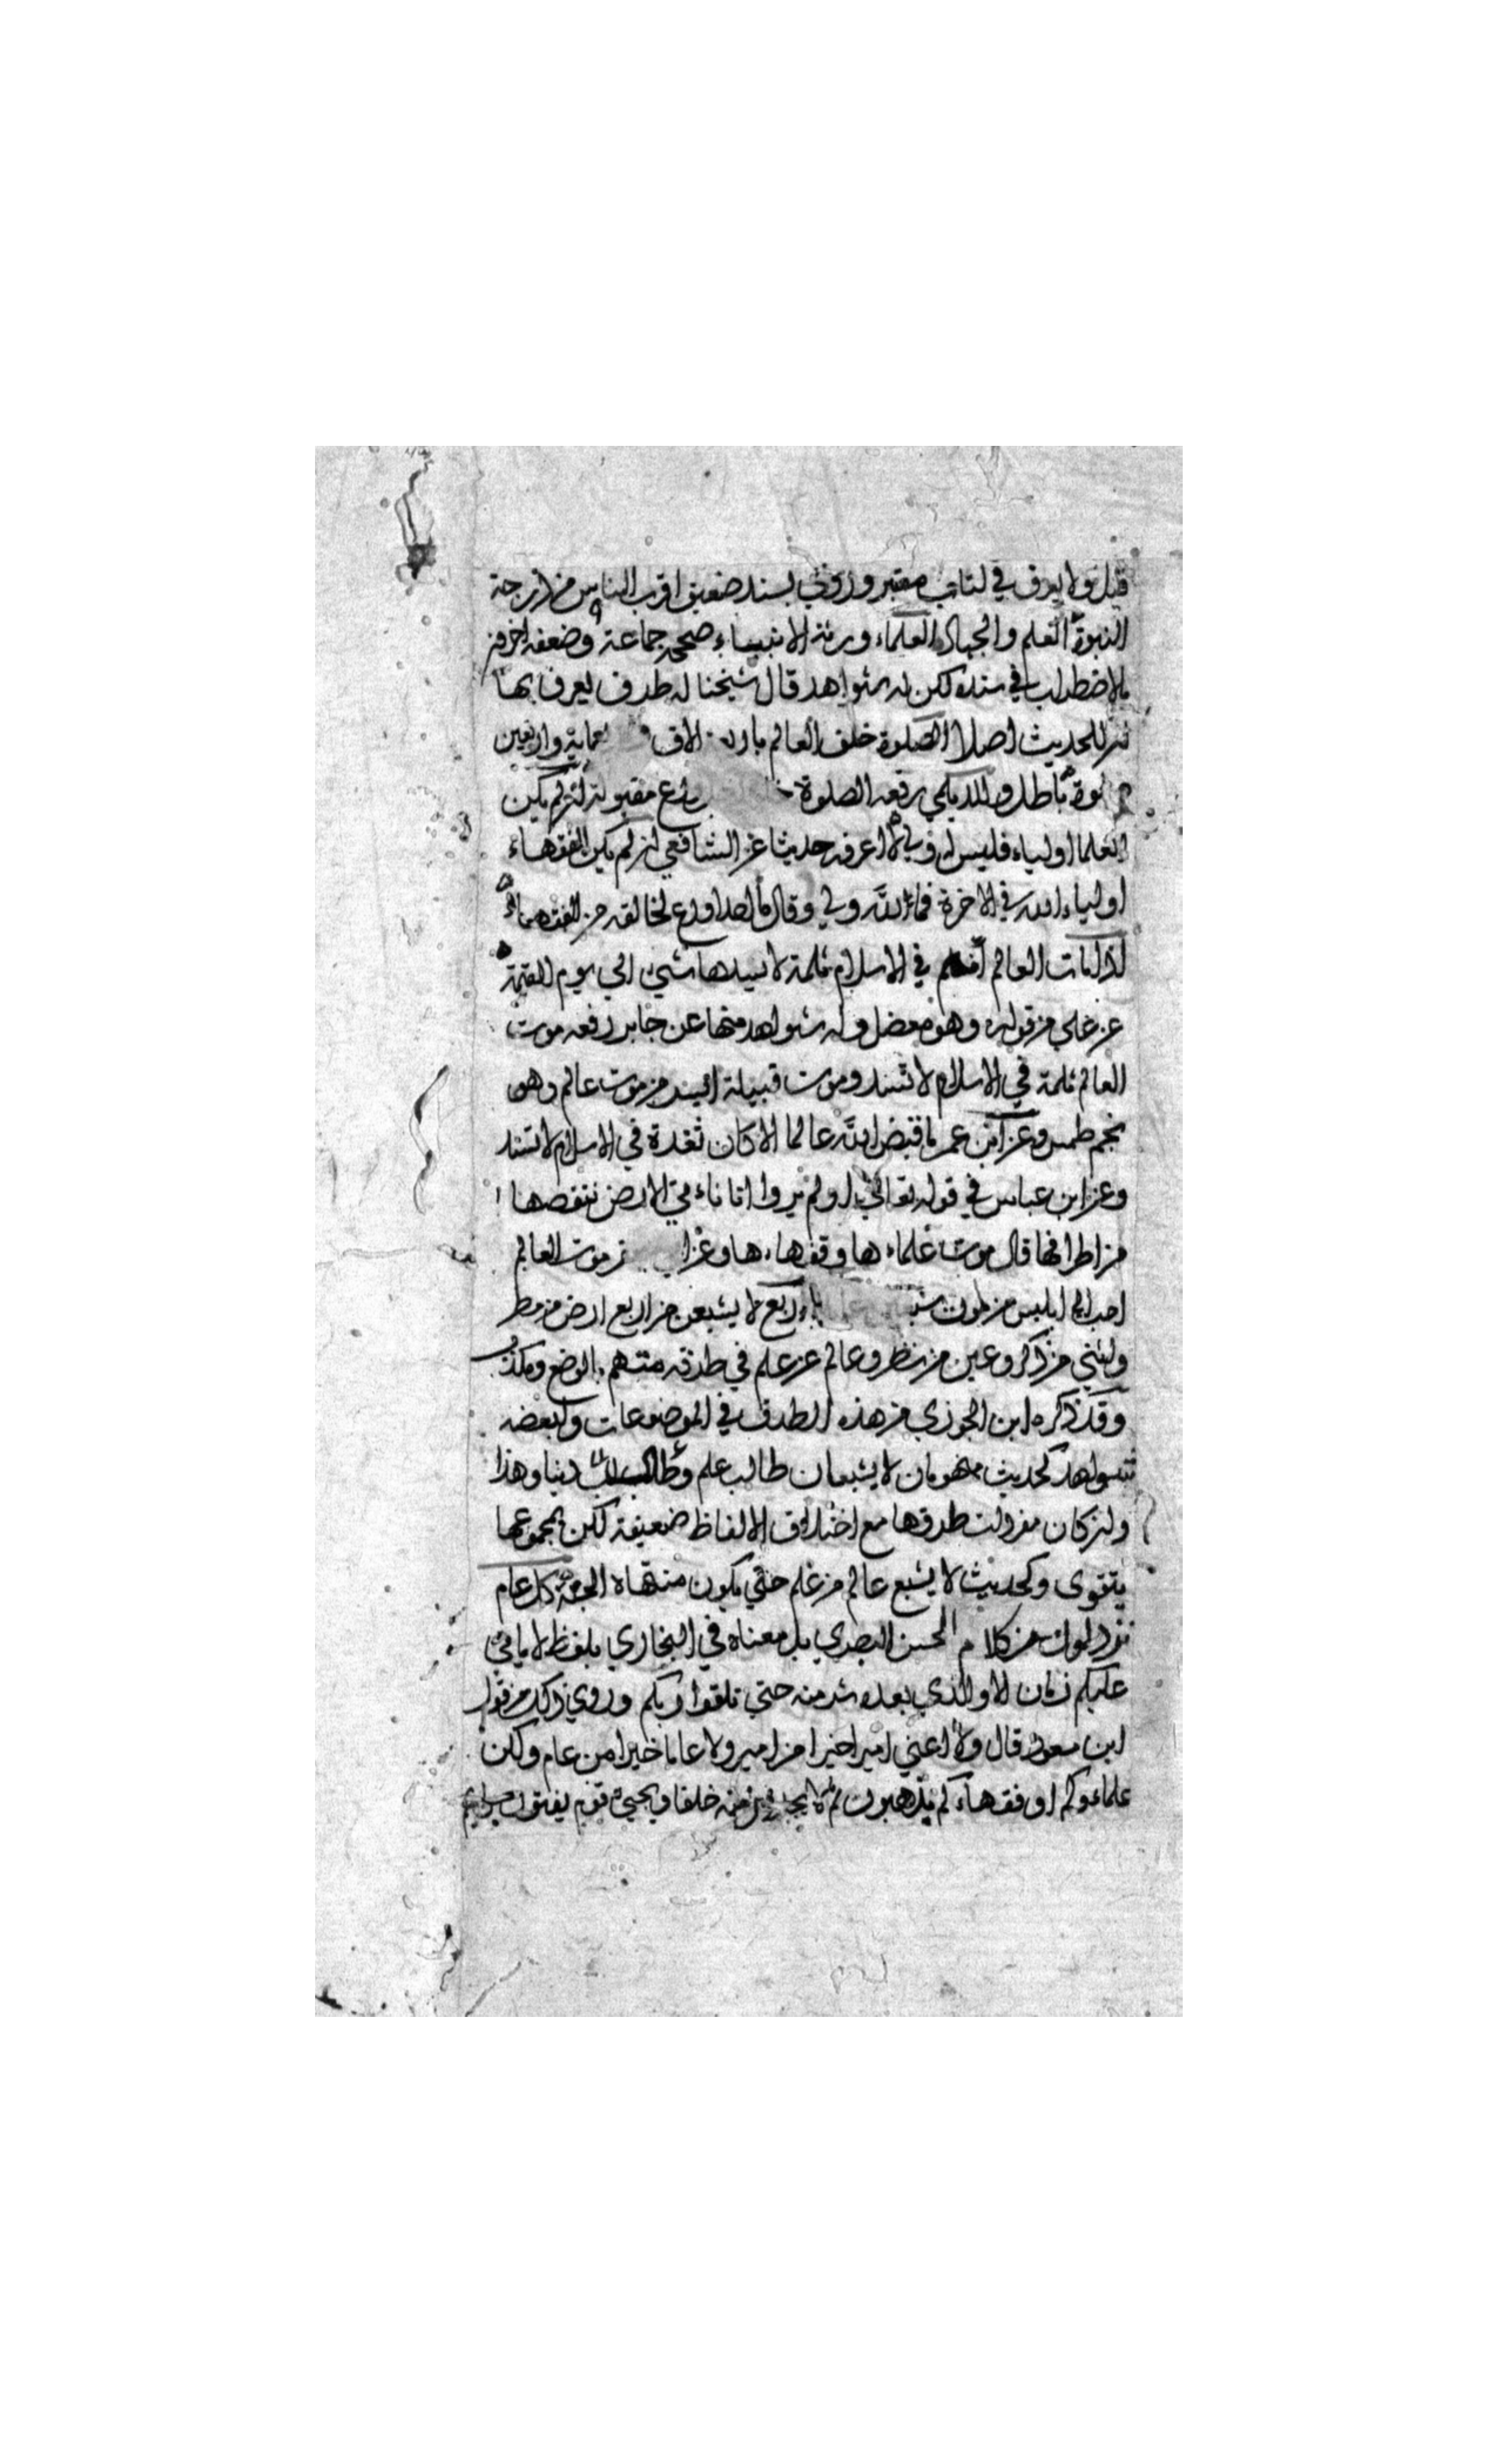 قيل ولا يعرف في كتاب معتبر وروي بسند ضعيف اقرب الناس من درجة
النبوة العلم والجهاد العلماء ورثة الانبياء صححه جماعة وضعفه اخرون
بالاضطراب في سنده لكن له شواهد قال شيخنا له طرف يعرف بها
ان للحديث اصلا الصلوة خلف العالم باربعة الاف واربعين
باطل وللديلمي رفعه الصلوة ورع مقبولة ان لم يكن
العلما اولياء فليس لله ولي لا اعرفه حديثا عن الشافعي ان لم يكن الفقهاء
اولياء الله في الاخرة فما لله ولي وقال ما احد اورع لخالقه من الفقهاء
اذا مات العالم انثلم في الاسلام ثلمة لا يسدها شيء الي يوم القيمة
عن علي من قوله وهو معضل وله شواهد منها عن جابر رفعه موت
العالم ثلمة في الاسلام لا تسد وموت قبيلة ايسر من موت عالم وهو
نجم طمس وعن ابن عمر ما قبض الله عالما الا كان ثغرة في الاسلام لا تسد
وعن ابن عباس في قوله تعالي اولم يروا انا ناءتي الارض ننقصها
من اطرافها قال موت علماءها وفقهاءها وعن موت العالم
احب الي ابليس من موت اربع لا يشبعن من اربع ارض من مطر
وانثي من ذكر وعين من نظر وعالم من علم في طرقه متهم بالوضع وكذب
وقد ذكره ابن الجوزي من هذه الطرق في الموضوعات ولبعضه
شواهد كحديث منهومان لا يشبعان طالب علم وطالب دنيا وهذا
وان كان مفردات طرقها مع اختلاف الالفاظ ضعيفة لكن بمجموعها
يتقوى وكحديث لا يشبع عالم من علم حتي يكون منتهاه الجنة كل عام
ترذلون من كلام الحسن البصري بل معناه في البخاري بلفظ لا ياتي
عليكم زمان الا والذي بعده شر منه حتي تلقوا ربكم وروي ذلك من قول
ابن مسعود قال ولا اعني اميرا خيرا من امير ولا عاما خيرا من عام ولكن
علماءوكم او فقهاءكم يذهبون ثم لا تجدون منهم خلفا ويجيء قوم يفتون برايهم